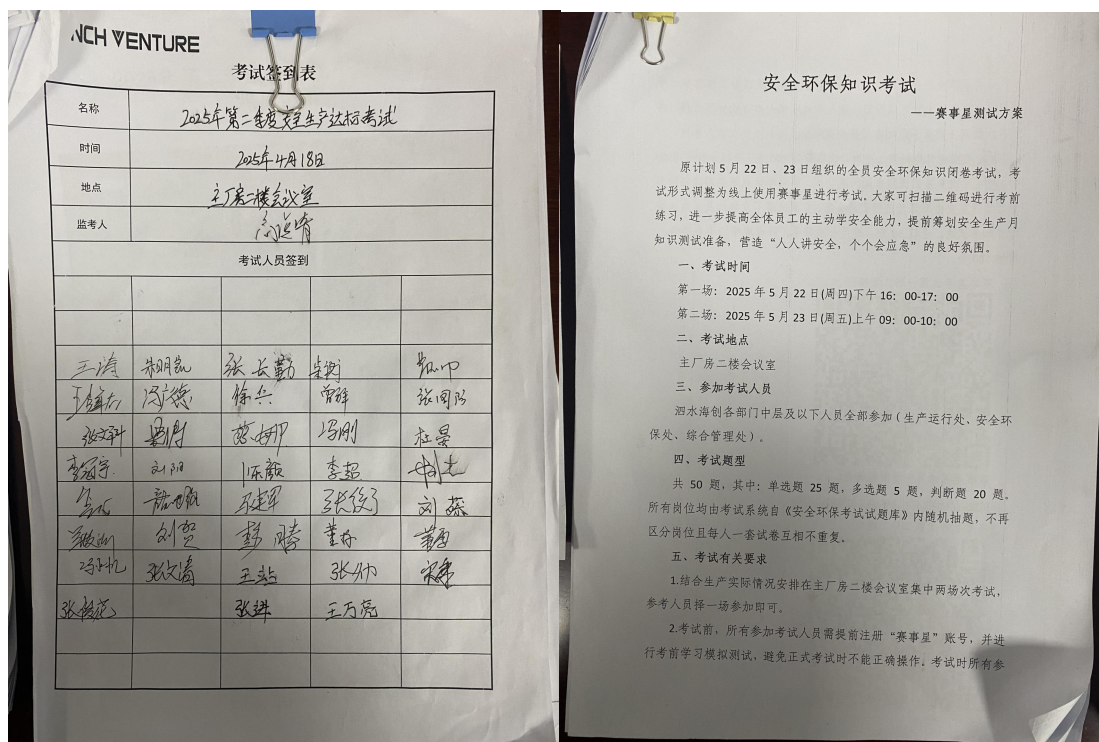 NCH VENTURE
考试签到表
名称 2025年第二季度安全生产达标考试
时间 2025年4月18日
地点 主厂房二楼会议室
监考人
考试人员签到
王涛 朱明凯 张长勤
冯广德 徐兵 曾祥 张国阳
张文科 冯刚 杜晏
李冠宇 刘阳 陈颜 李超
马建军 张俊子 刘蕊
刘贺 彭腾 董栋
张文涛 王站 张帅
张进 王万亮
安全环保知识考试
——赛事星测试方案
原计划5月22日、23日组织的全员安全环保知识闭卷考试，考
试形式调整为线上使用赛事星进行考试。大家可扫描二维码进行考前
练习，进一步提高全体员工的主动学安全能力，提前筹划安全生产月
知识测试准备，营造“人人讲安全，个个会应急”的良好氛围。
一、考试时间
第一场：2025年5月22日(周四)下午16：00-17：00
第二场：2025年5月23日(周五)上午09：00-10：00
二、考试地点
主厂房二楼会议室
三、参加考试人员
泗水海创各部门中层及以下人员全部参加（生产运行处、安全环
保处、综合管理处）。
四、考试题型
共 50 题，其中：单选题 25 题，多选题 5 题，判断题 20 题。
所有岗位均由考试系统自《安全环保考试试题库》内随机抽题，不再
区分岗位且每人一套试卷互相不重复。
五、考试有关要求
1.结合生产实际情况安排在主厂房二楼会议室集中两场次考试，
参考人员择一场参加即可。
2.考试前，所有参加考试人员需提前注册“赛事星”账号，并进
行考前学习模拟测试，避免正式考试时不能正确操作。考试时所有参